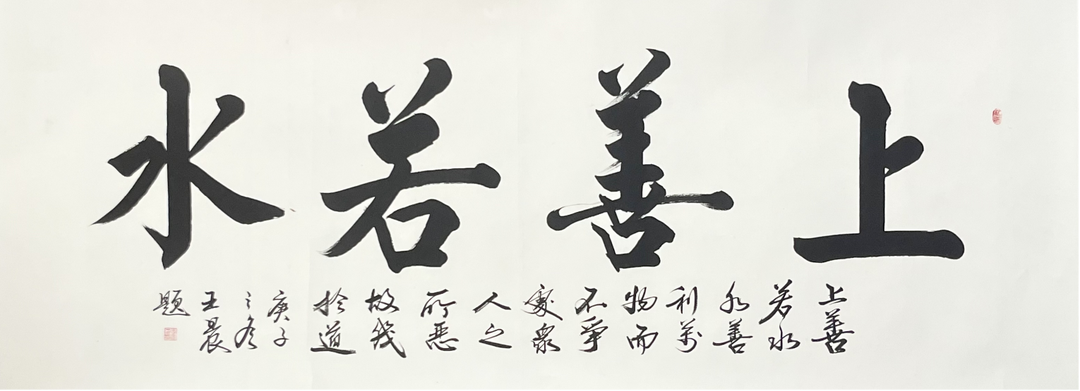 上善若水
上善
若水
水善
利萬
物而
不爭
處衆
人之
所惡
故幾
於道
庚子
之冬
王晨
題